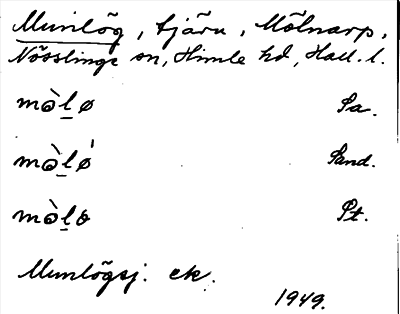 Munlög, tjärn, Mölnarp,
Nösslinge sn, Himle hd, Hall. l.
mə̀lø Sa.
mə̀lǿ Sand.
mə̀lə Pt.
Munlögsj. ek.
1949.